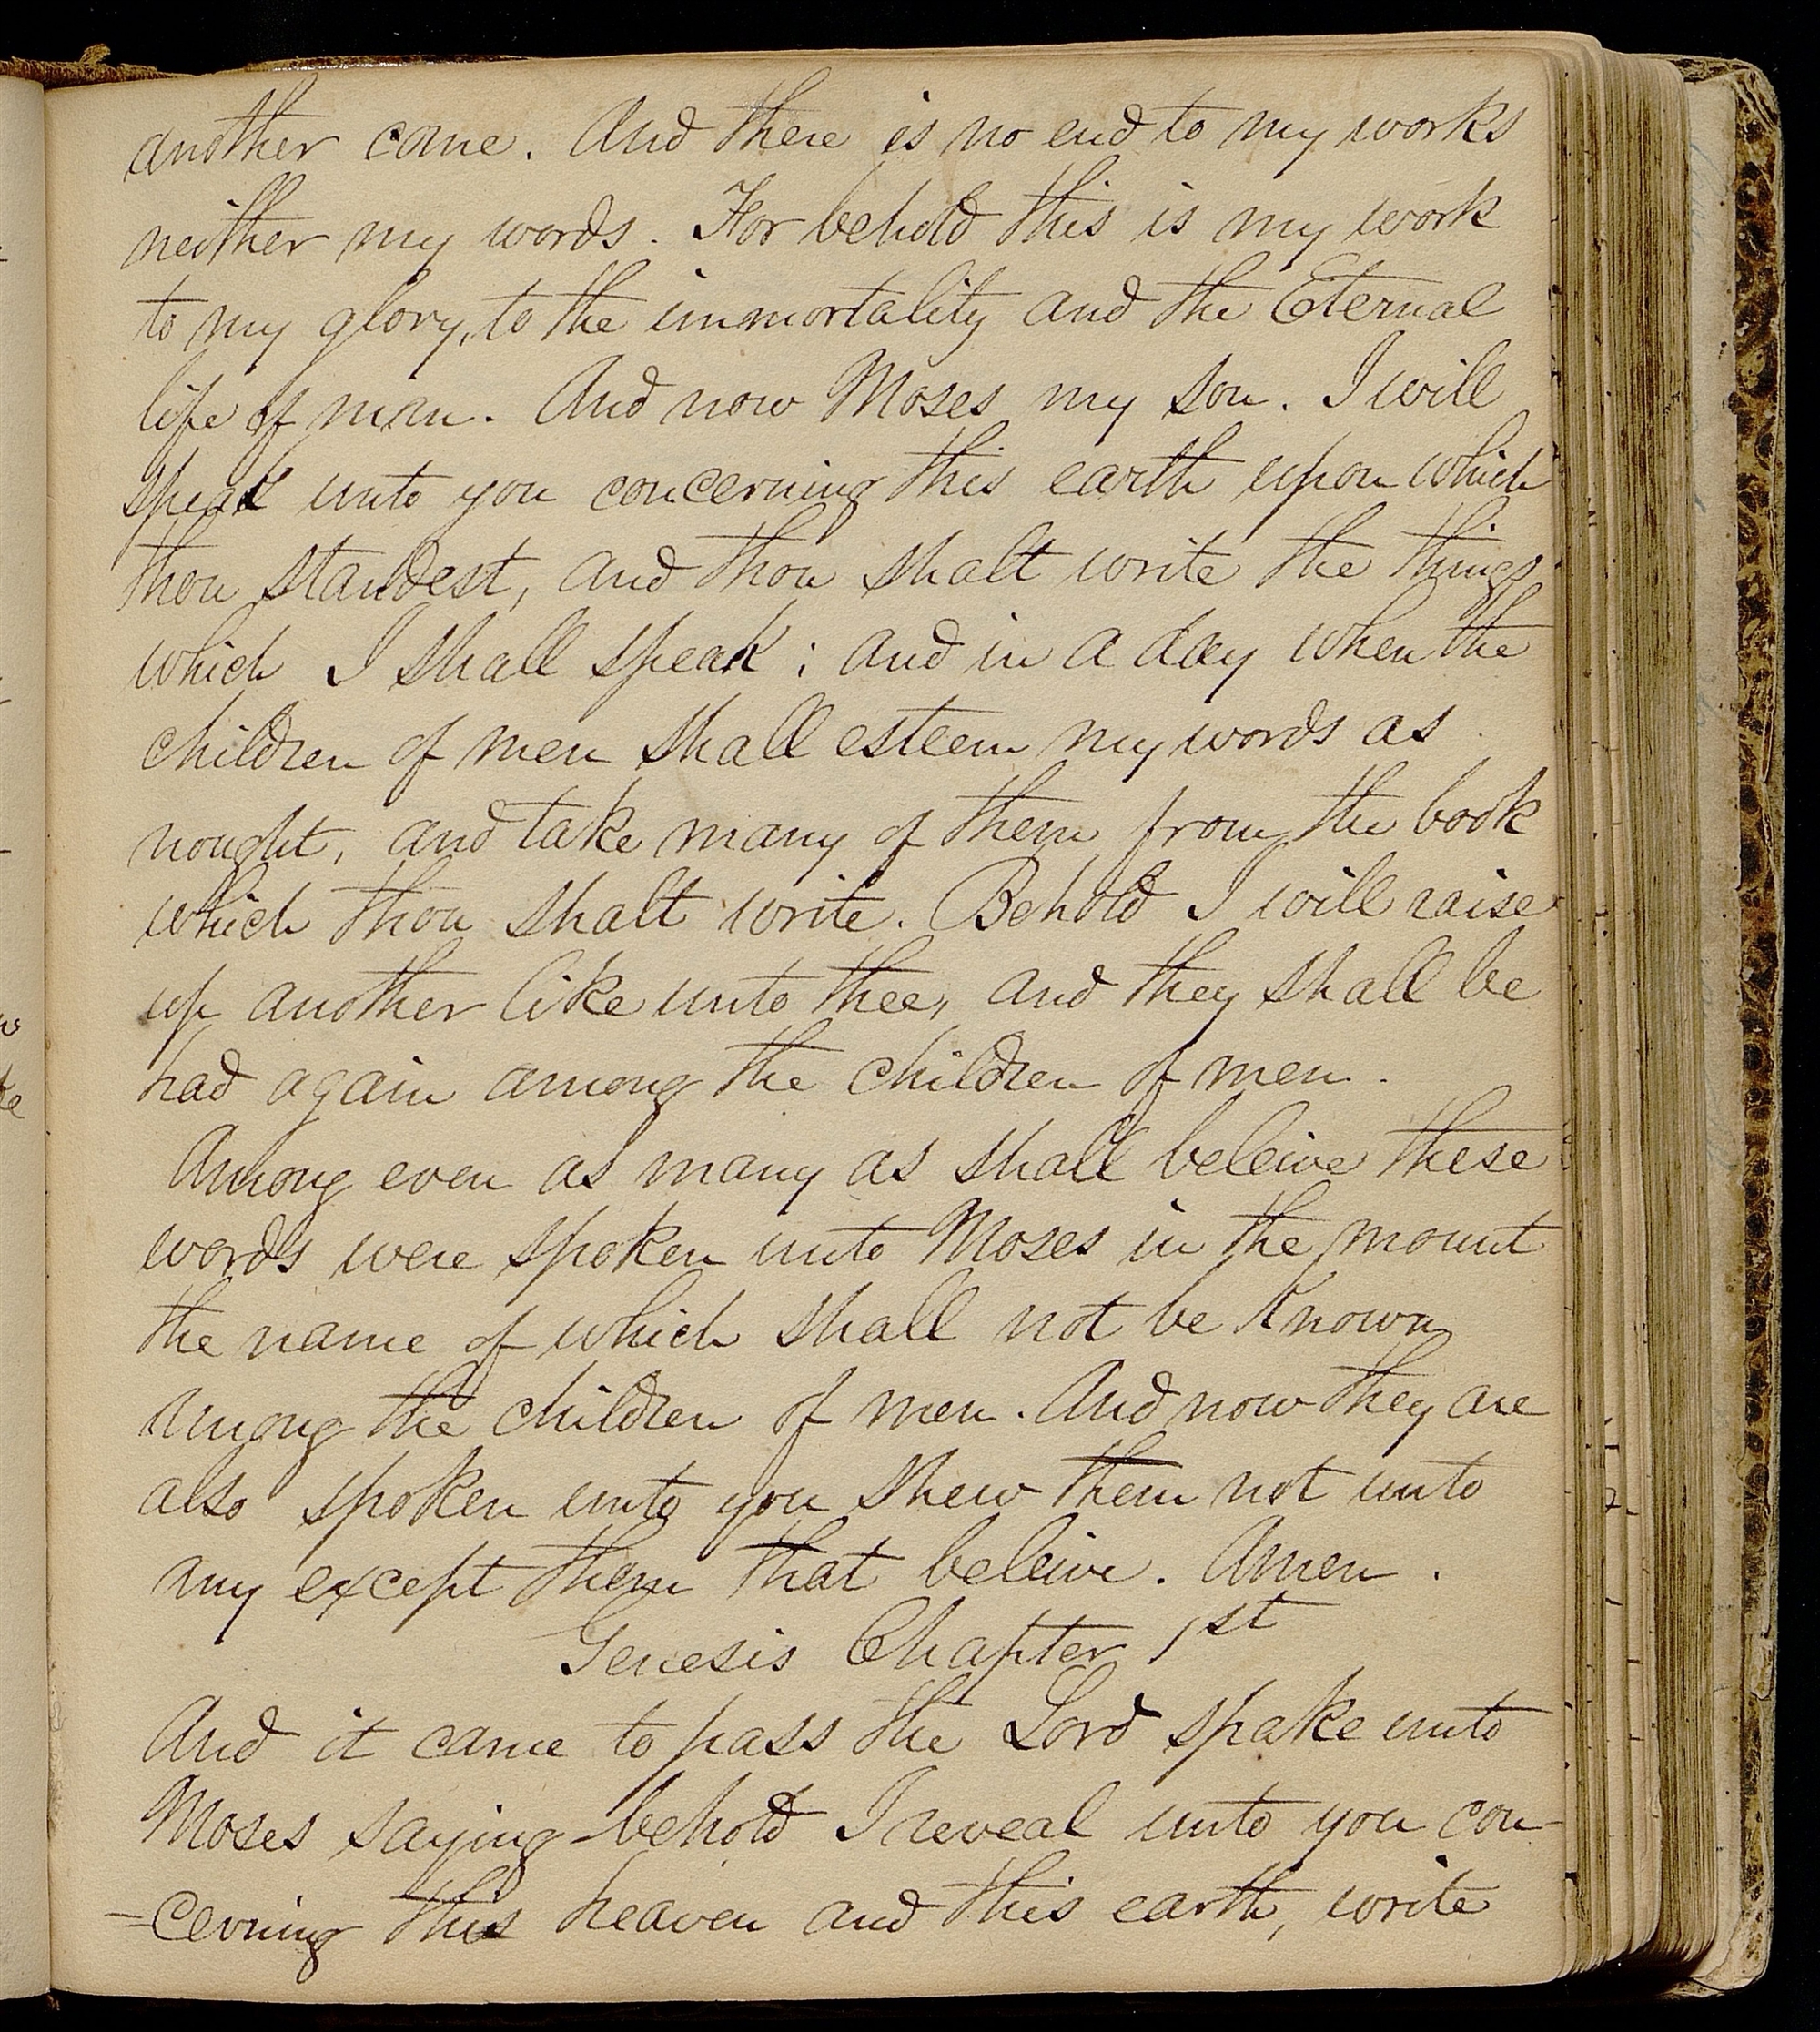 another come. And there is no end to my works
neither my words. For behold this is my work
to my glory, to the immortality and the Eternal
life of man. And now Moses my son. I will
speak unto you concerning this earth upon which
thou standest, and thou shalt write the things
which I shall speak; and in a day when the
children of men shall esteem my words as
nought, and take many of them from the book
which thou shalt write. Behold I will raise
up another like unto thee, and they shall be
had again among the children of men.
Among even as many as shall beleive these
words were spoken unto Moses in the mount
the name of which shall not be known
among the children of men. And now they are
also spoken unto you shew them not unto
any except them that beleive. Amen.
Genesis Chapter 1st
And it came to pass the Lord spake unto
Moses saying behold I reveal unto you con-
-cerning this heaven and this earth, write